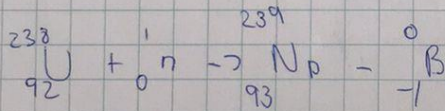 ²³⁸₉₂U + ¹₀n -> ²³⁹₉₃Np - ⁰₋₁B